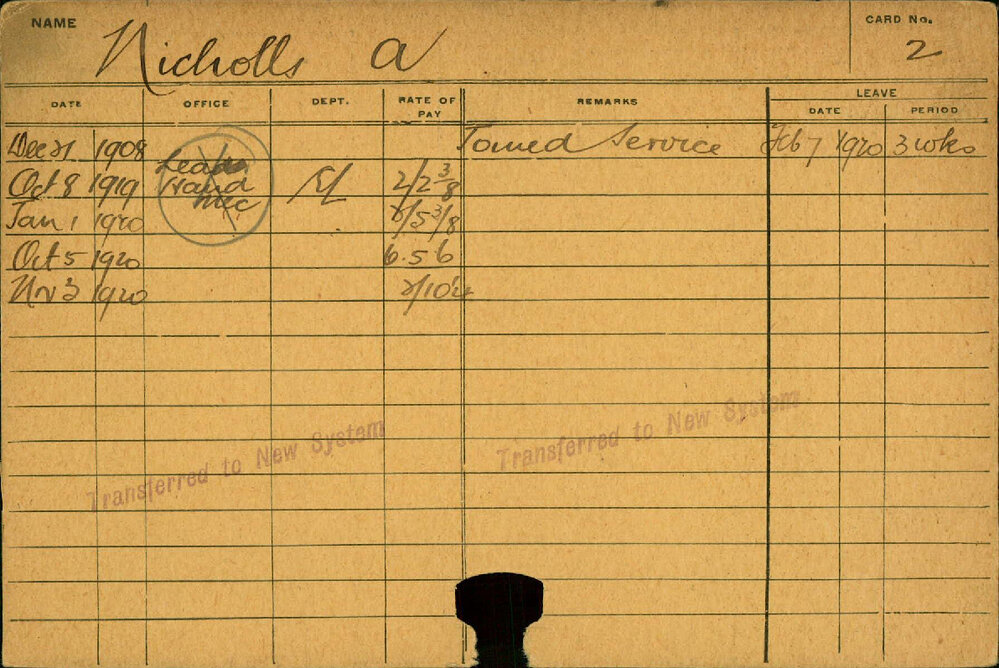 NAME Nicholls A CARD No. 2
DATE OFFICE DEPT. RATE OF PAY REMARKS LEAVE
DATE PERIOD
Dec 21 1908 Joined Service Feb 7 1920 3 wks
Oct 8 1919 Leads Hand Mec 2/2 3/8
Jan 1 1920 2/5 3/8
Oct 5 1920 6.5 6
Nov 3 1920 2/10
Transferred to New System Transferred to New System